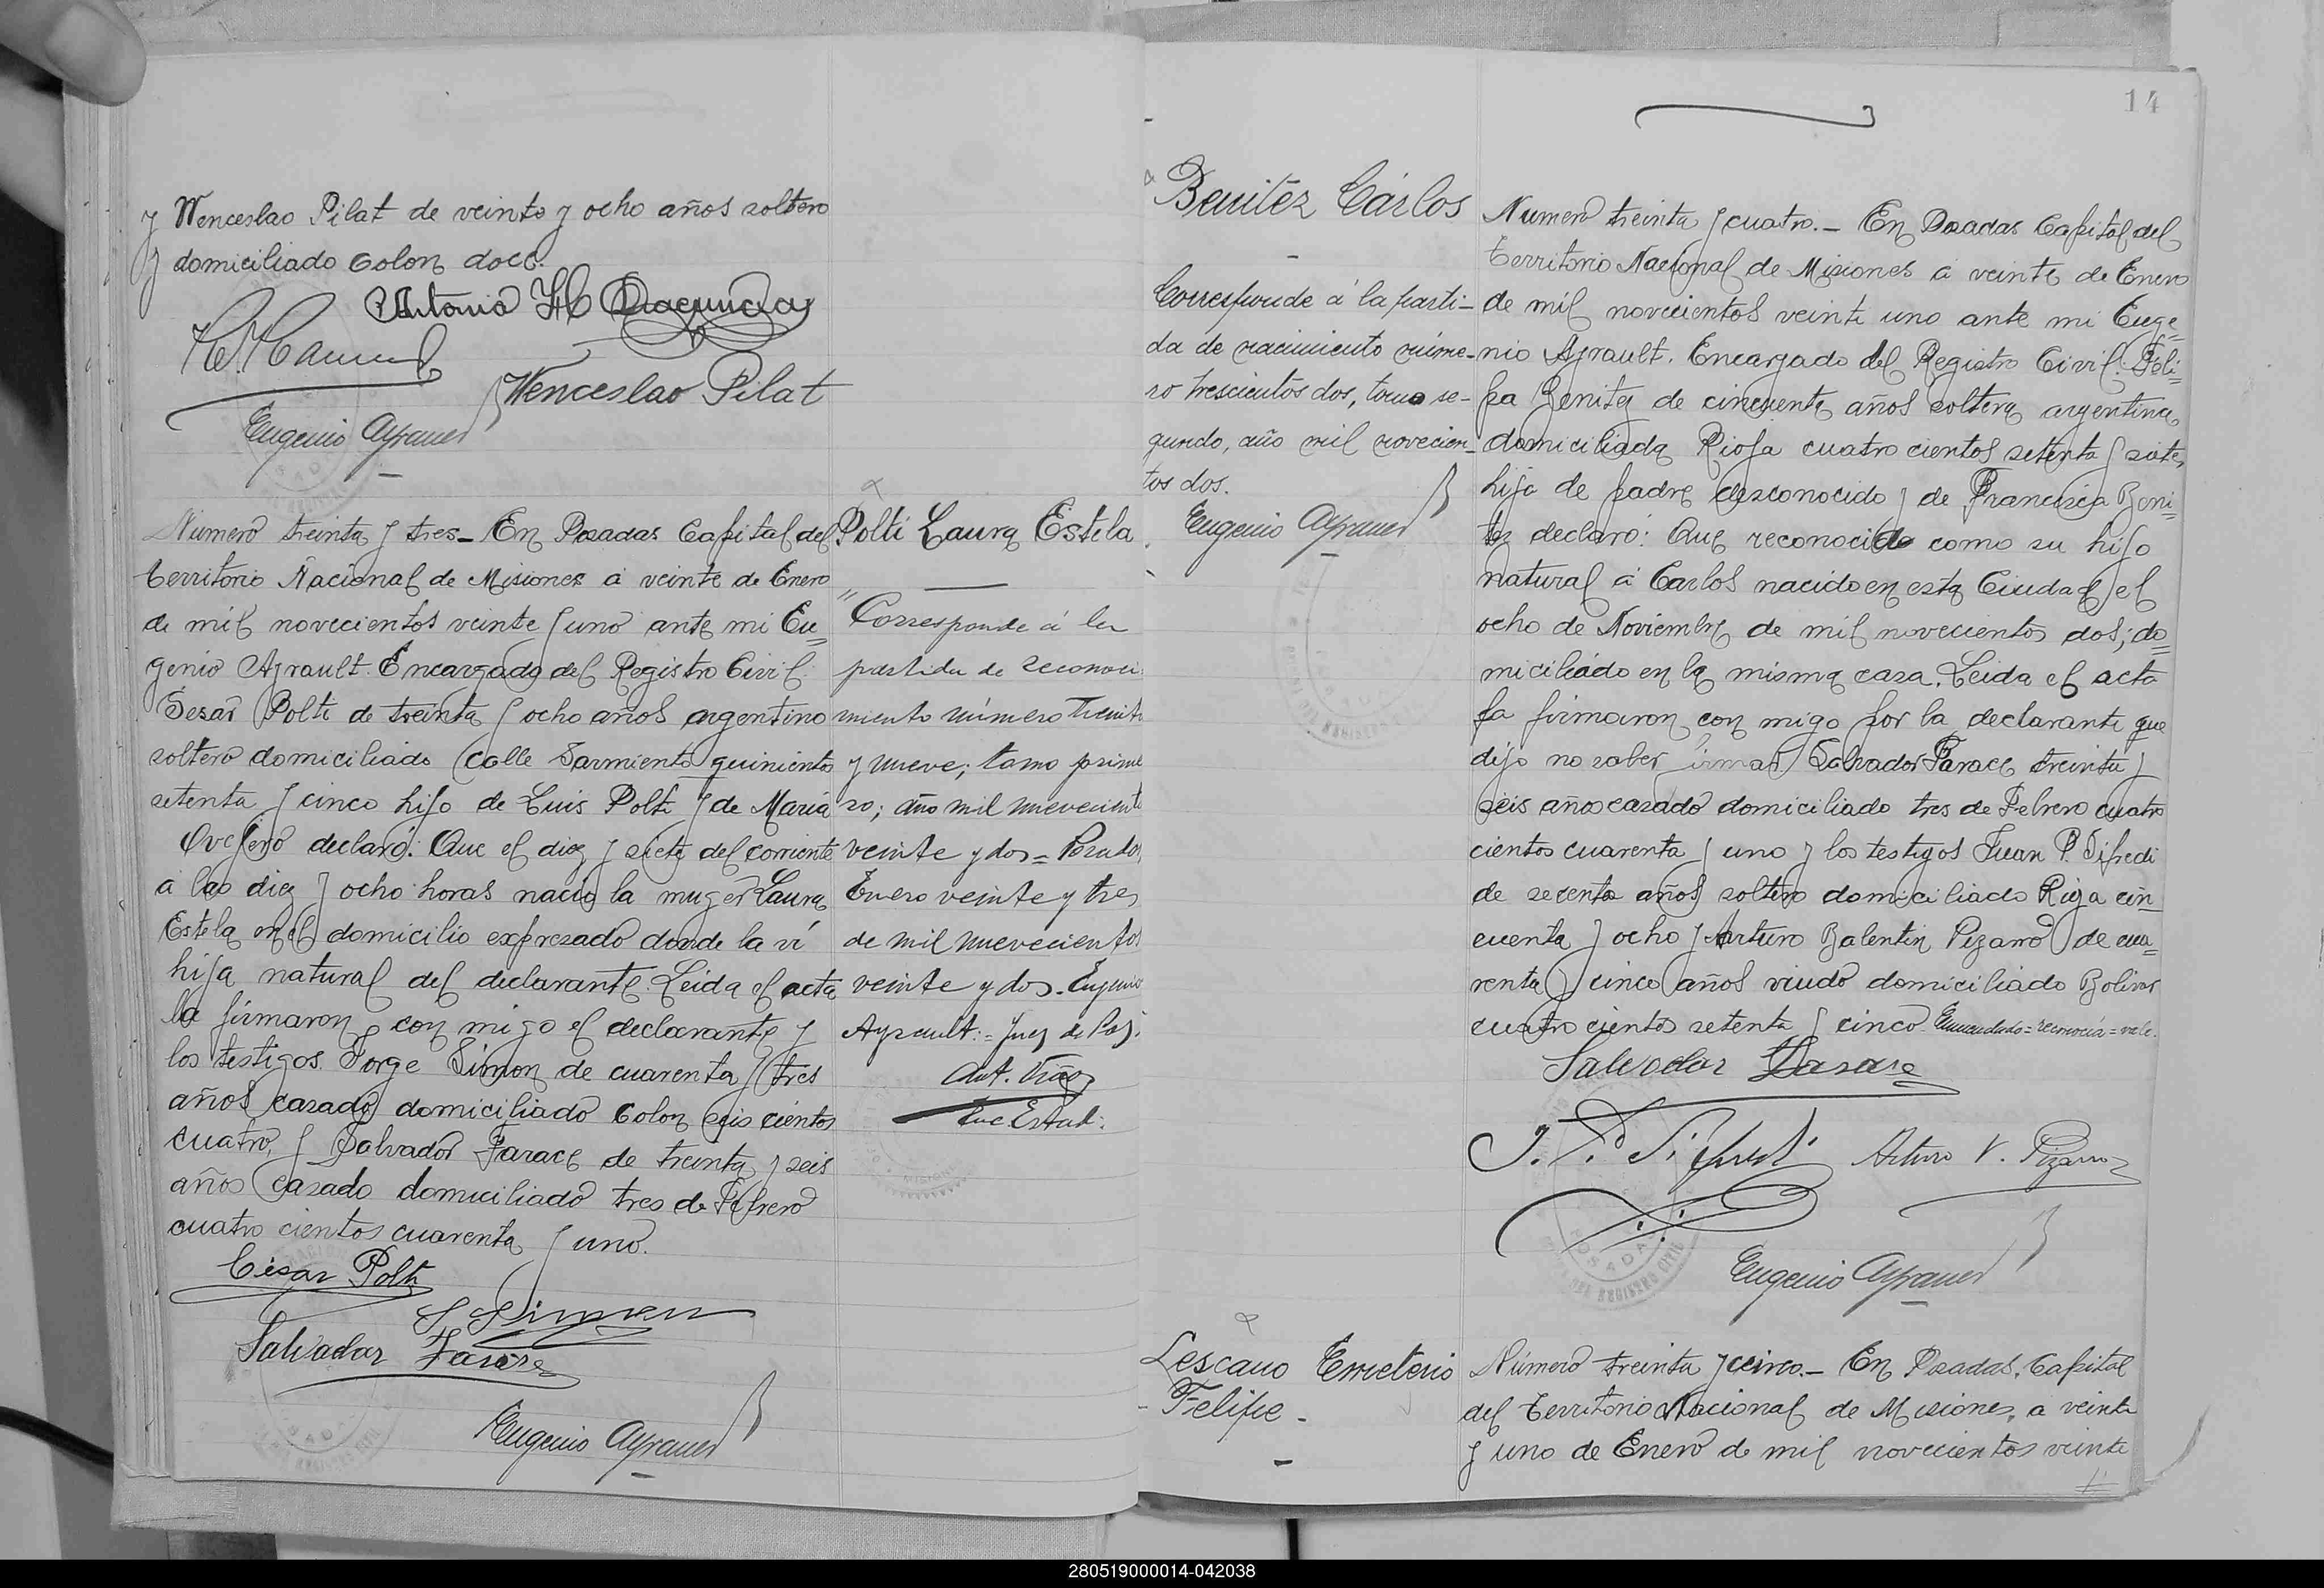 y Wenceslao Pilat de veinte y ocho años soltero
y domiciliado Colon doce.
Antonio H
Wenceslao Pilat
Eugenio Ayrault
Numero treinta y tres_ En Posadas Capital del
territorio Nacional de Misiones a veinte de Enero
de mil novecientos veinte y uno ante mi Eu=
genio Ayrault. Encargado del Registro Civil.
Sesar Polti de treinta y ocho años argentino
soltero domiciliado calle Sarmiento quinientos
setenta y cinco hijo de Luis Polti y de Maria
Ovejero declaró: Que el diez y siete del corriente
a las diez y ocho horas nacio la muger Laura
Estela en el domicilio expresado donde la ví
hija natural del declarante. Leida el acta
la firmaron con migo el declarante y
los testigos. Jorge Simon de cuarenta y tres
años casado domiciliado Colon seis cientos
cuatro, y Salvador Farace de treinta y seis
años casado domiciliado tres de Febrero
cuatro cientos cuarenta y uno.
César Polti
J Simon
Salvador Farace
Eugenio Ayrault
Polti Laura Estela
"Corresponde á la
partida de reconoci
miento número treinta
y nueve; tomo prime
ro; año mil nuevecient
veinte y dos = Posadas,
Enero veinte y tres
de mil nuevecientos
veinte y dos. Eugenio
Ayrault: = Juez de Paz.
Ant.
Enc. Estad:
14
Benitez Cárlos
Corresponde á la parti-
da de nacimiento núme-
ro trescientos dos, tomo se-
gundo, año mil novecien-
tos dos.
Eugenio Ayrault
Numero treinta y cuatro._ En Posadas Capital del
territorio Nacional de Misiones a veinte de Enero
de mil novecientos veinte uno ante mi Euge=
nio Ayrault. Encargado del Registro Civil. Feli=
pa Benitez de cincuenta años soltera argentina,
domiciliada Rioja cuatro cientos setenta y siete,
hija de padre desconocido y de Francisca Beni=
tez declaró: Que reconocido como su hijo
natural á Carlos nacido en esta Ciudad el
ocho de Noviembre de mil novecientos dos; do=
miciliado en la misma casa. Leida el acta
la firmaron con migo por la declarante que
dijo no saber firmar Salvador Farace treinta y
seis años casado domiciliado tres de Febrero cuatro
cientos cuarenta y uno y los testigos Juan P. Sifredi
de secenta años soltero domiciliado Rioja cin_
cuenta y ocho y Arturo Balentin Pizarro de cua=
renta y cinco años viudo domiciliado Bolivar
cuatro cientos setenta y cinco. Enmendado = reconocía = vale.
Salvador Farace
J. P. Sifredi
Arturo V. Pizarro
Eugenio Ayrault
Lescano Emeterio
Felipe -
Número treinta y cinco._ En Posadas, Capital
del territorio Nacional de Misiones, a veinte
y uno de Enero de mil novecientos veinte
280519000014-042038